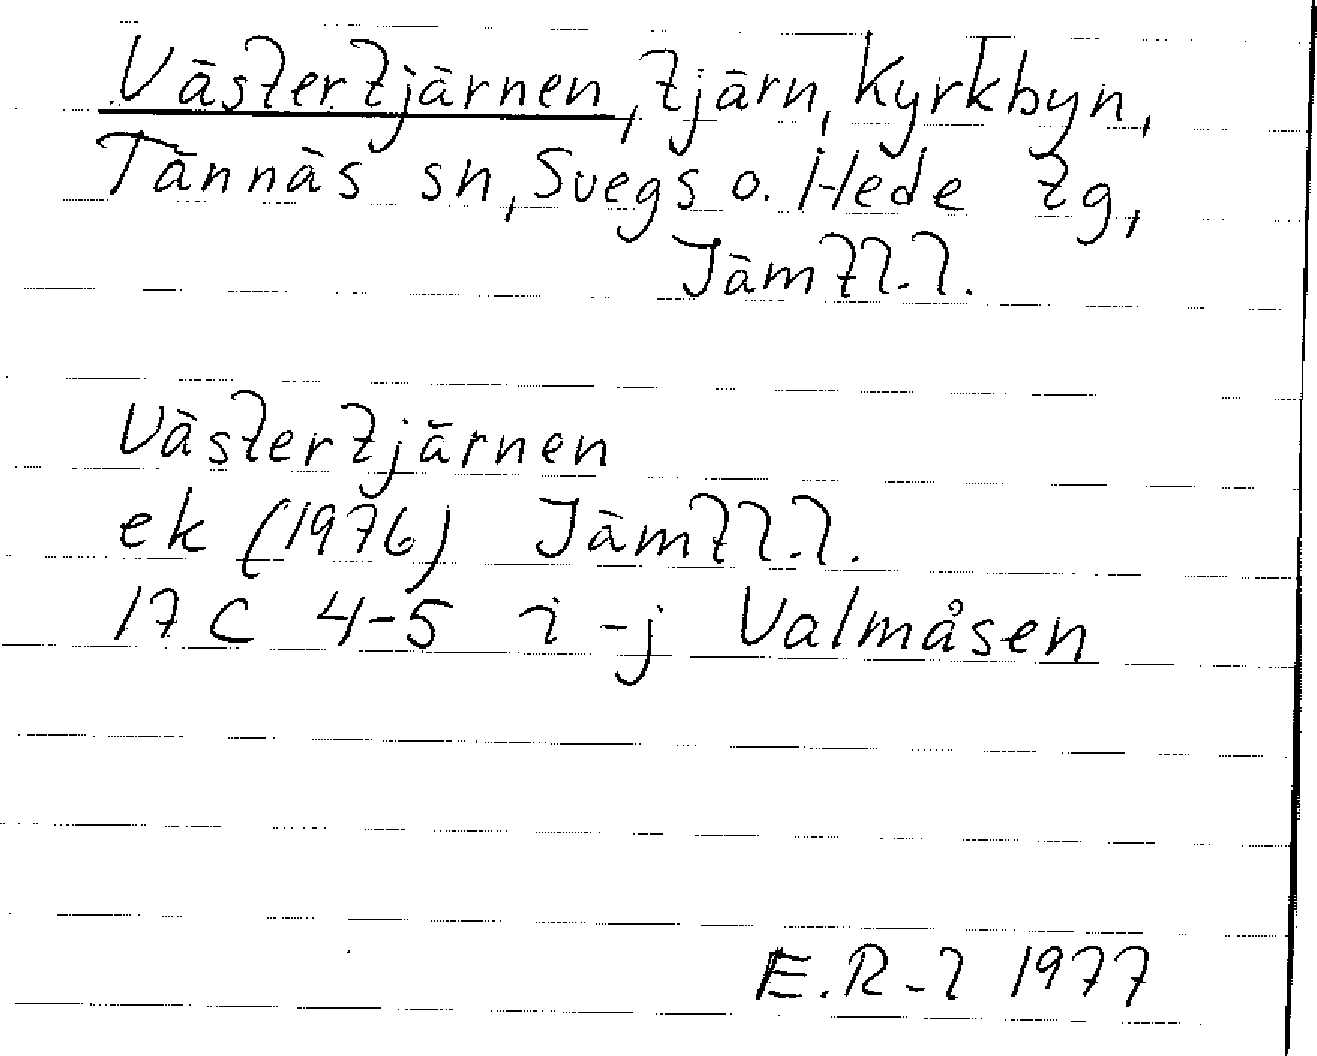 Västertjärnen, tjärn, Kyrkbyn,
Tännäs sn, Svegs o. Hede tg,
Jämtl.l.
Västertjärnen
ek (1976) Jämtl.l.
17 C 4-5 i-j Valmåsen
E.R-l 1977